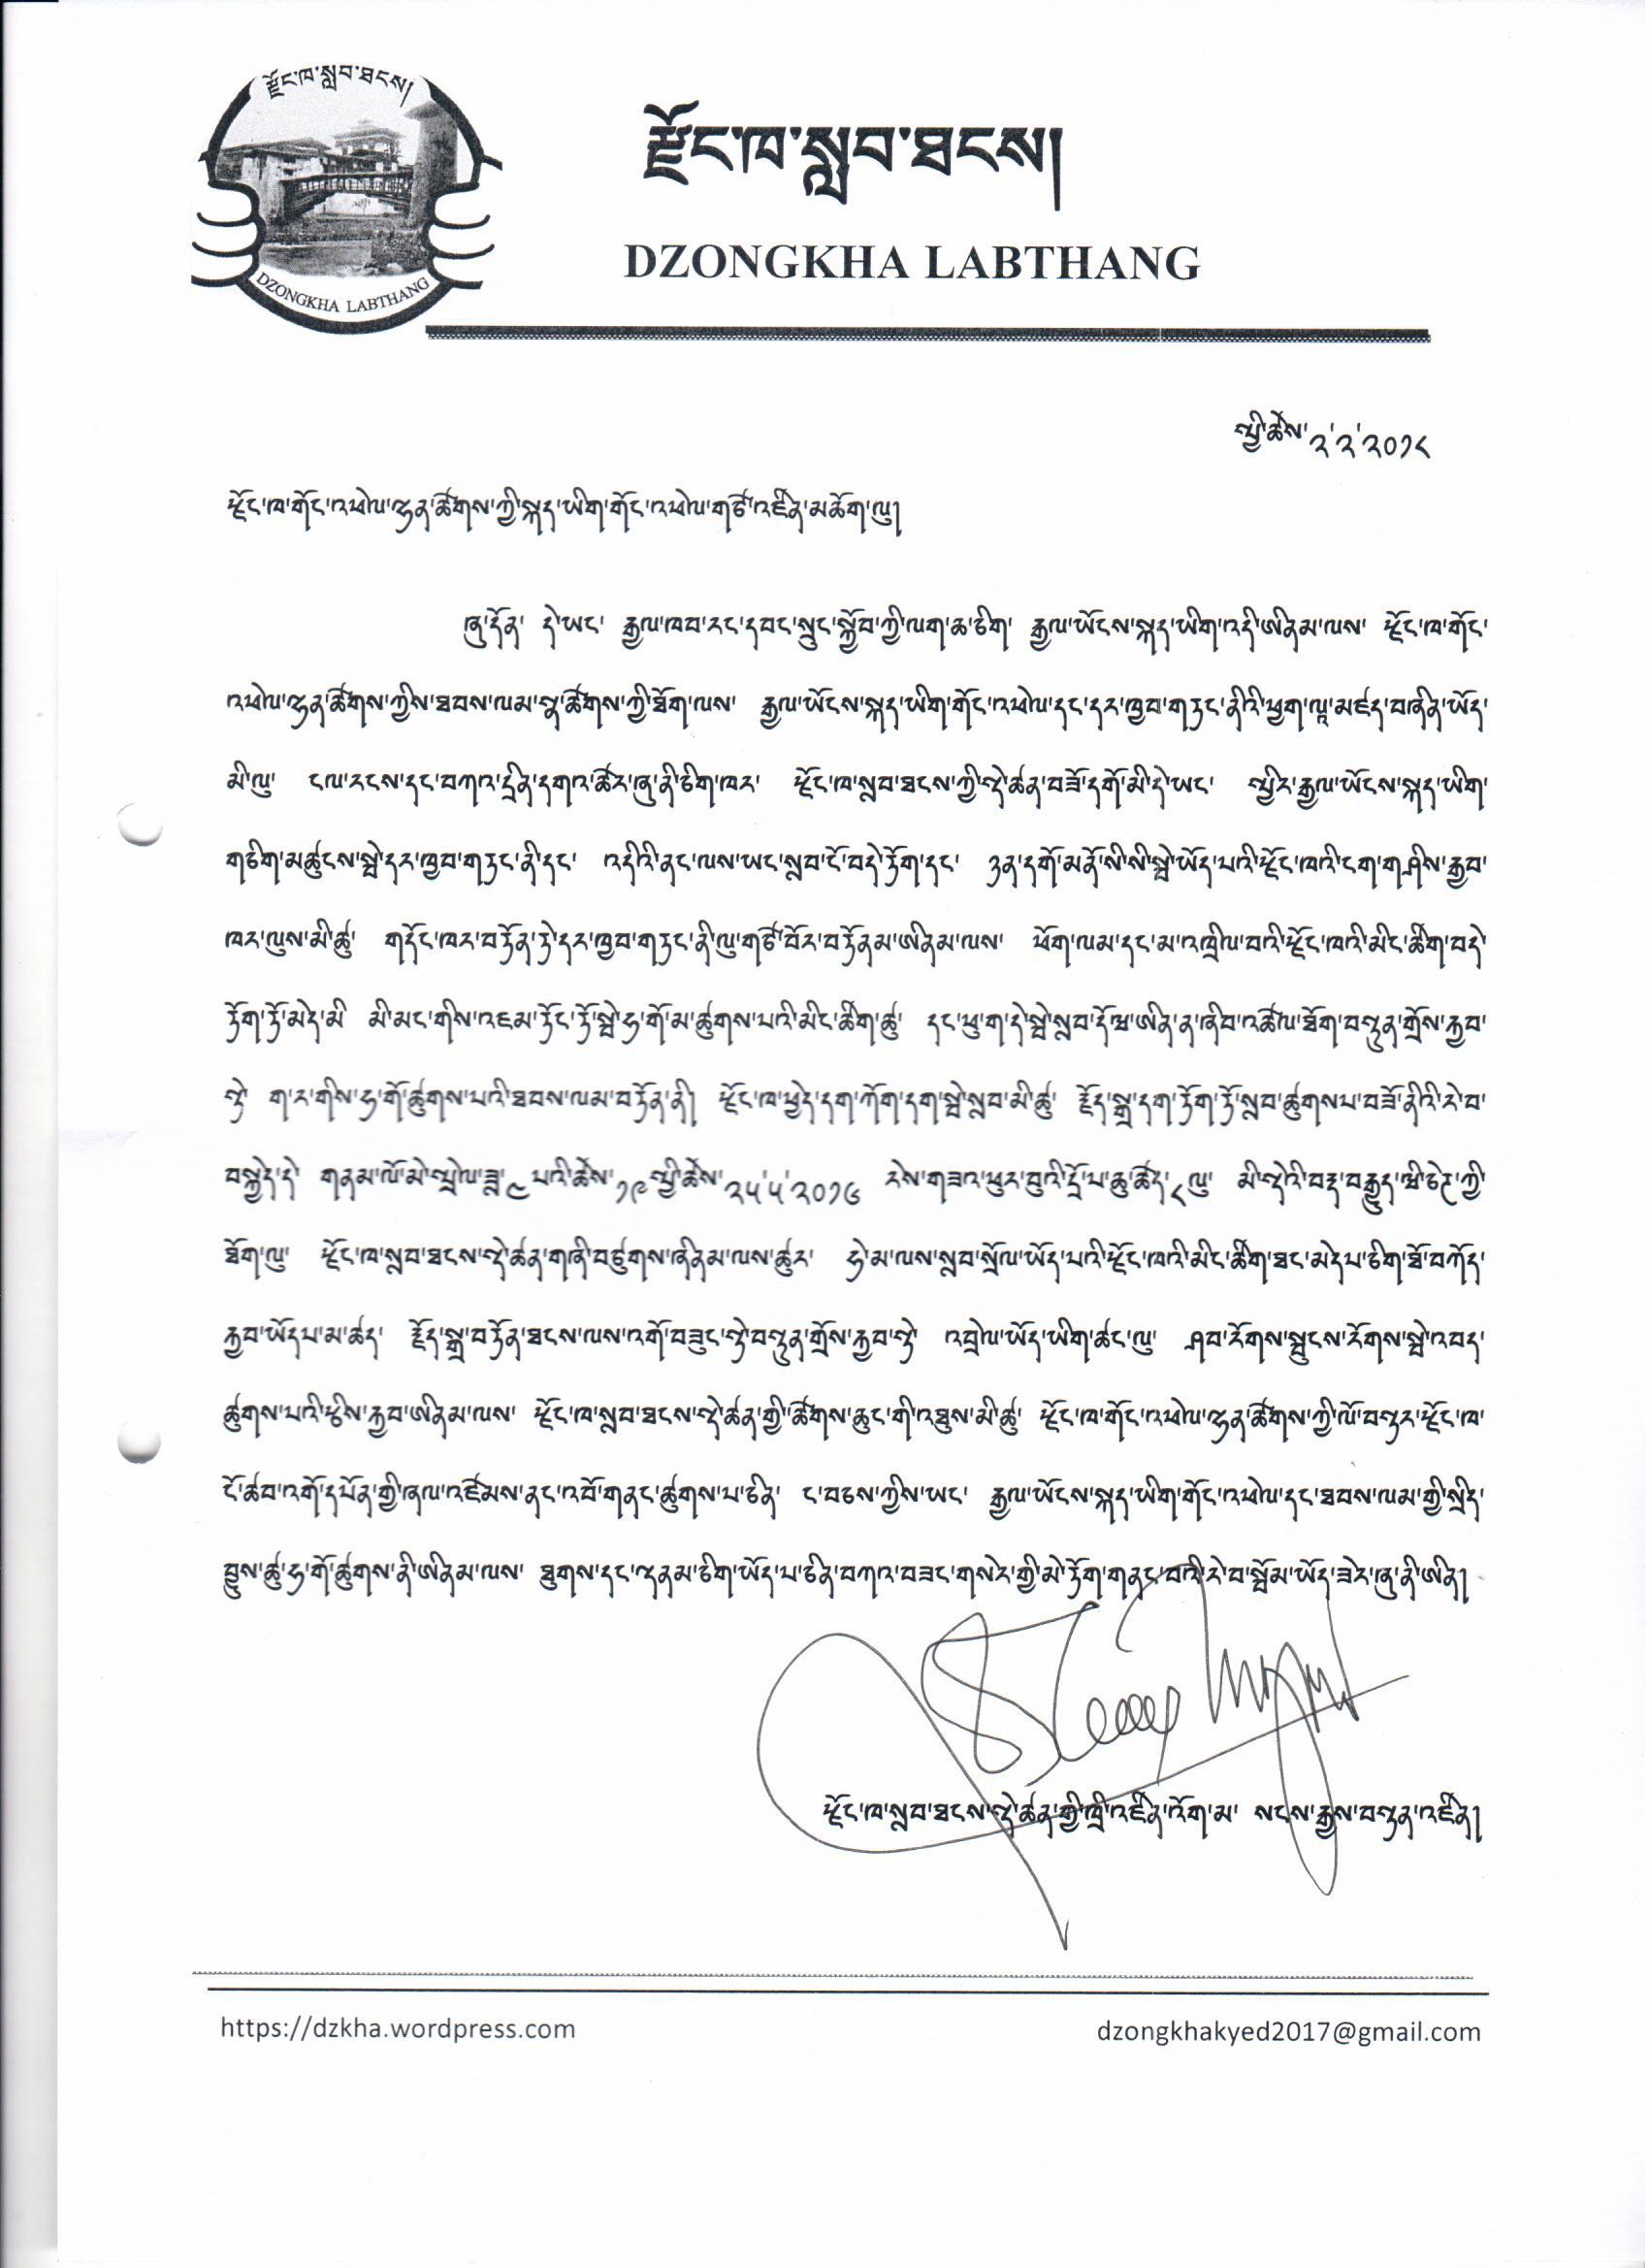 རྫོང་ཁ་སླབ་ཐངས།
རྫོང་ཁ་སླབ་ཐངས།
DZONGKHA LABTHANG
DZONGKHA LABTHANG
སྤྱི་ཚེས་ ༢་༢་༢༠༡༨
རྫོང་ཁ་གོང་འཕེལ་ལྷན་ཚོགས་ཀྱི་སྐད་ཡིག་གོང་འཕེལ་གཙོ་འཛིན་མཆོག་ལུ།
ཞུ་དོན་ དེ་ཡང་ རྒྱལ་ཁབ་རང་དབང་སྲུང་སྐྱོབ་ཀྱི་ལག་ཆ་ཅིག་ རྒྱལ་ཡོངས་སྐད་ཡིག་འདི་ཨིནམ་ལས་ རྫོང་ཁ་གོང་
འཕེལ་ལྷན་ཚོགས་ཀྱིས་ཐབས་ལམ་སྣ་ཚོགས་ཀྱི་ཐོག་ལས་ རྒྱལ་ཡོངས་སྐད་ཡིག་གོང་འཕེལ་དང་དར་ཁྱབ་གཏང་ནིའི་ཕྱག་ལཱ་མཛད་བཞིན་ཡོད་
མི་ལུ་ ངལ་རངས་དང་བཀའ་དྲིན་དགའ་ཚོར་ཞུ་ནི་ཅིག་ཁར་ རྫོང་ཁ་སླབ་ཐངས་ཀྱི་སྡེ་ཚན་བཟོ་དགོ་མི་དེ་ཡང་ སྤྱིར་རྒྱལ་ཡོངས་སྐད་ཡིག་
གཅིག་མཚུངས་སྦེ་དར་ཁྱབ་གཏང་ནི་དང་ འདིའི་ནང་ལས་ཡང་སླབ་ངོ་བདེ་ཏོག་དང་ ཉན་དགོ་མནོ་སི་སི་སྦེ་ཡོད་པའི་རྫོང་ཁའི་ངག་གཤིས་རྒྱབ་
ཁར་ལུས་མི་ཚུ་ གདོང་ཁར་བཏོན་ཏེ་དར་ཁྱབ་གཏང་ནི་ལུ་གཙོ་བོར་བཏོནམ་ཨིནམ་ལས་ ཕོག་ལམ་དང་མ་འཁྲིལ་བའི་རྫོང་ཁའི་མིང་ཚིག་བདེ་
ཏོག་ཏོ་མེད་མི་ མི་མང་གིས་འཇམ་ཏོང་ཏོ་སྦེ་ཧ་གོ་མ་ཚུགས་པའི་མིང་ཚིག་ཚུ་ དང་ཕུ་ག་དེ་སྦེ་སླབ་དོ་ཝ་ཨིན་ན་ཞིབ་འཚོལ་ཐོག་བསྟུན་གྲོས་རྐྱབ་
སྟེ་ ག་ར་གིས་ཧ་གོ་ཚུགས་པའི་ཐབས་ལམ་བཏོན་ནི། རྫོང་ཁ་ཕྱེད་དག་ཀོག་དག་སྦེ་སླབ་མི་ཚུ་ རྗོད་སྒྲ་དག་ཏོག་ཏོ་སླབ་ཚུགསཔ་བཟོ་ནིའི་རེ་བ་
བསྐྱེད་དེ་ གནམ་ལོ་མེ་སྤྲེལ་ཟླ་༩ པའི་ཚེས་༡༩ སྤྱི་ཚེས་༢༥་༥་༢༠༡༦ རེས་གཟའ་ཕུར་བུའི་དྲོ་པ་ཆུ་ཚོད་༨ ལུ་ མི་སྡེའི་བརྡ་བརྒྱུད་ཝི་ཅེཊ་ཀྱི་
ཐོག་ལུ་ རྫོང་ཁ་སླབ་ཐངས་སྡེ་ཚན་གཞི་བཙུགས་ཞིནམ་ལས་ཚུར་ ཧེ་མ་ལས་སླབ་སྲོལ་ཡོད་པའི་རྫོང་ཁའི་མིང་ཚིག་ཐང་མེདཔ་ཅིག་ཐོ་བཀོད་
རྐྱབ་ཡོདཔ་མ་ཚད་ རྗོད་སྒྲ་བཏོན་ཐངས་ལས་འགོ་བཟུང་སྟེ་བསྟུན་གྲོས་རྐྱབ་སྟེ་ འབྲེལ་ཡོད་ཡིག་ཚང་ལུ་ ཤབ་རོགས་སྤུངས་རོགས་སྦེ་འབད་
ཚུགས་པའི་རྩིས་རྐྱབ་ཨིནམ་ལས་ རྫོང་ཁ་སླབ་ཐངས་སྡེ་ཚན་གྱི་ཚོགས་ཆུང་གི་འཐུས་མི་ཚུ་ རྫོང་ཁ་གོང་འཕེལ་ལྷན་ཚོགས་ཀྱི་ལོ་བསྟར་རྫོང་ཁ་
ངོ་ཚབ་འགོ་དཔོན་གྱི་ཞལ་འཛོམས་ནང་འབོ་གནང་ཚུགས་པ་ཅིན་ ང་བཅས་ཀྱིས་ཡང་ རྒྱལ་ཡོངས་སྐད་ཡིག་གོང་འཕེལ་དང་ཐབས་ལམ་གྱི་སྲིད་
བྱུས་ཚུ་ཧ་གོ་ཚུགས་ནི་ཨིནམ་ལས་ ཐུགས་དང་ལྡནམ་ཅིག་ཡོད་པ་ཅིན་བཀའ་བཟང་གསེར་གྱི་མེ་ཏོག་གནང་བའི་རེ་བ་སྦོམ་ཡོད་ཟེར་ཞུ་ནི་ཨིན།
རྫོང་ཁ་སླབ་ཐངས་སྡེ་ཚན་གྱི་ཁྲི་འཛིན་འོག་མ་ སངས་རྒྱས་བསྟན་འཛིན།
https://dzkha.wordpress.com
dzongkhakyed2017@gmail.com